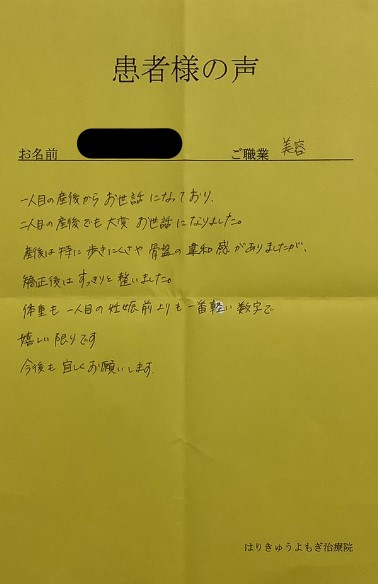 患者様の声
お名前 ご職業 美容
一人目の産後からお世話になっており、
二人目の産後でも大変お世話になりました。
産後は特に歩きにくさや骨盤の違和感がありましたが、
矯正後はすっきりと整いました。
体重も一人目の妊娠前よりも一番軽い数字で
嬉しい限りです
今後も宜しくお願いします。
はりきゅうよもぎ治療院